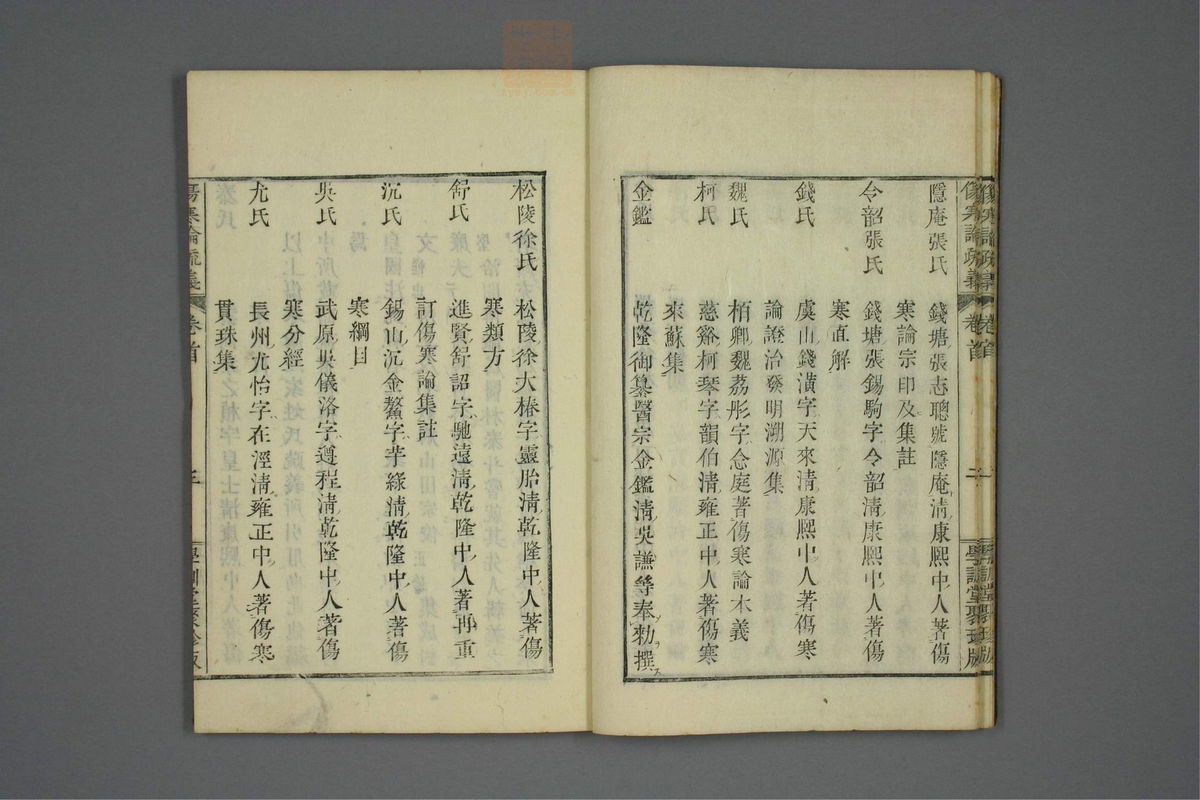 傷寒論疏義 卷首 二 學訓堂聚珍版
隱庵張氏 錢塘張志聰號隱庵淸康熙中人著傷
寒論宗印及集註
令韶張氏 錢塘張錫駒字令韶淸康熙中人著傷
寒直解
錢氏 虞山錢潢字天來淸康熙中人著傷寒
論證治發明溯源集
魏氏 栢鄕魏荔彤字念庭著傷寒論本義
柯氏 慈谿柯琴字韻伯淸雍正中人著傷寒
來蘇集
金鑑 乾隆御纂醫宗金鑑淸吳謙等奉勑撰
松陵徐氏 松陵徐大椿字靈胎淸乾隆中人著傷
寒類方
舒氏 進賢舒詔字馳遠淸乾隆中人著再重
訂傷寒論集註
沉氏 錫山沉金鰲字芋綠淸乾隆中人著傷
寒綱目
吳氏 武原吳儀洛字遵程淸乾隆中人著傷
寒分經
尤氏 長州尤怡字在涇淸雍正中人著傷寒
貫珠集
傷寒論疏義 卷首